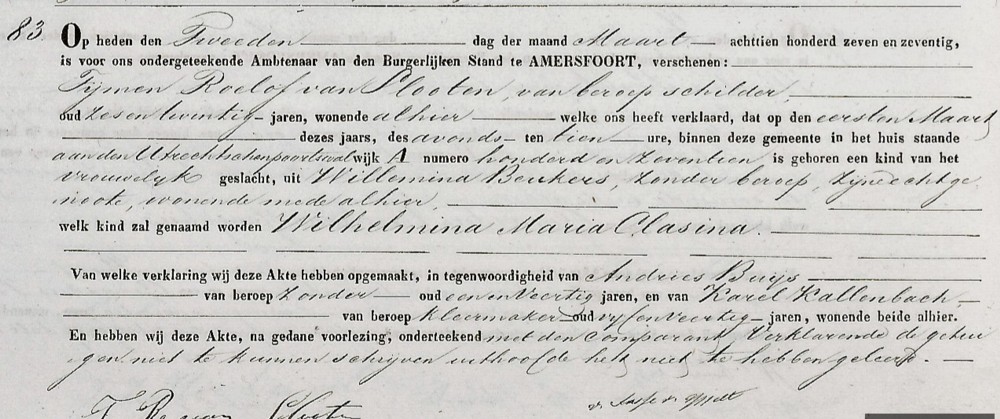 83.
Op heden den Tweeden dag der maand Maart achttien honderd zeven en zeventig,
is voor ons ondergeteekende Ambtenaar van den Burgerlijken Stand te AMERSFOORT, verschenen:
Tijmen Roelof van Slooten, van beroep schilder,
oud zes en twintig jaren, wonende alhier welke ons heeft verklaard, dat op den eersten Maart
dezes jaars, des avonds ten tien ure, binnen deze gemeente in het huis staande
aan den Utrechtschenpoortswal wijk A numero honderd en zeventien is geboren een kind van het
vrouwelijk geslacht, uit Willemina Beukers, zonder beroep, zijne echtge
noote, wonende mede alhier,
welk kind zal genaamd worden Wilhelmina Maria Clasina.
Van welke verklaring wij deze Akte hebben opgemaakt, in tegenwoordigheid van Andries Buijs
van beroep zonder oud een en veertig jaren, en van Karel Kallenbach,
van beroep kleermaker oud vijf en veertig jaren, wonende beide alhier.
En hebben wij deze Akte, na gedane voorlezing, onderteekend met den comparant, verklarende de getui
gen niet te kunnen schrijven uithoofde het niet te hebben geleerd.
T. R. van Slooten